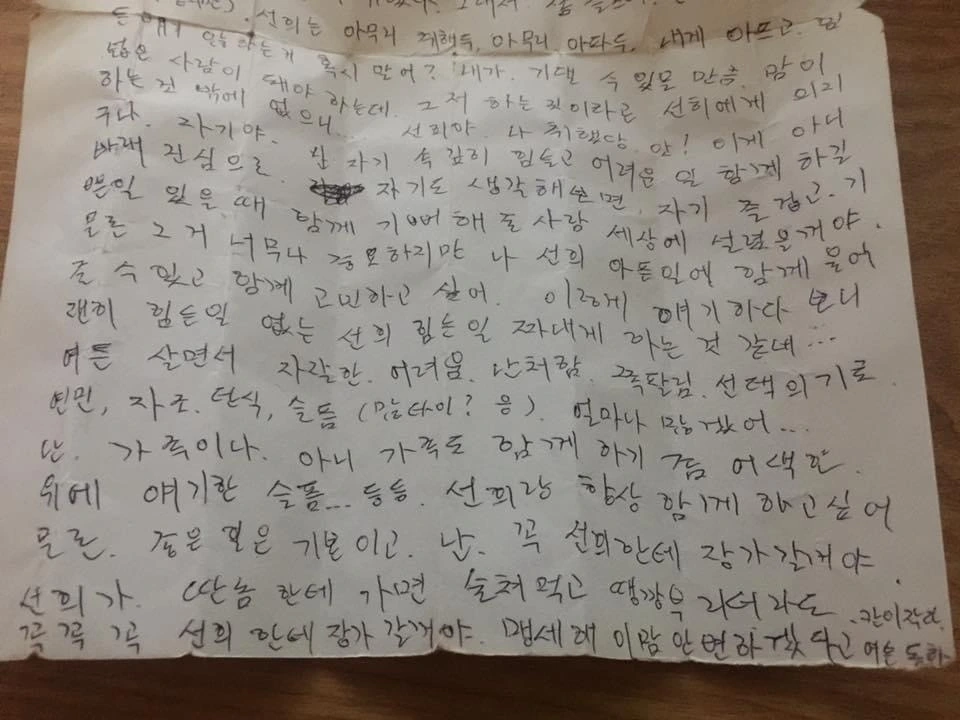 선희는 아무리 피해두, 아무리 아파두, 내게 아프고. 힘
든 얘기 안하는거 혹시 알어? 내가. 기댈 수 있을 만큼. 맘이
넓은 사람이 돼야 하는데. 그저 하는 짓이라곤 선희에게 의지
하는것 밖에 없으니... 선희야. 나 취했당. 안! 이게 아니
구나. 자기야. 난 자기 속 깊히 힘들고 어려운 일 함께 하길
바래 진심으로. 자기도 생각해보면. 자기 즐겁고. 기
쁜일 있을 때 함께 기뻐해 줄 사람 세상에 널렸을거야.
물론 그거 너무나 중요하지만 나 선희 아픈일에 함께 울어
줄 수 있고 함께 고민하고 싶어. 이렇게 얘기하다 보니
괜히 힘든일 없는 선희 힘든일 짜내게 하는 것 같네...
여튼 살면서 자잘한. 어려움. 난처함. 쪽팔림. 선택의 기로
연민, 자조. 탄식, 슬픔 (맘다이? 응). 얼마나 많겠어...
난. 가족이나. 아니 가족도 함께 하기 쫌 어색한.
위에 얘기한 슬픔... 등등. 선희랑 항상 함께 하고싶어
물론. 좋은 일은 기본이고. 난. 꼭 선희한테 장가갈거야.
선희가. 딴놈 한테 가면 술쳐먹고 땡깡부리더라도
꼭 꼭 꼭 선희 한테 장가 갈거야. 맹세해 이맘 안변하겠다고 여튼